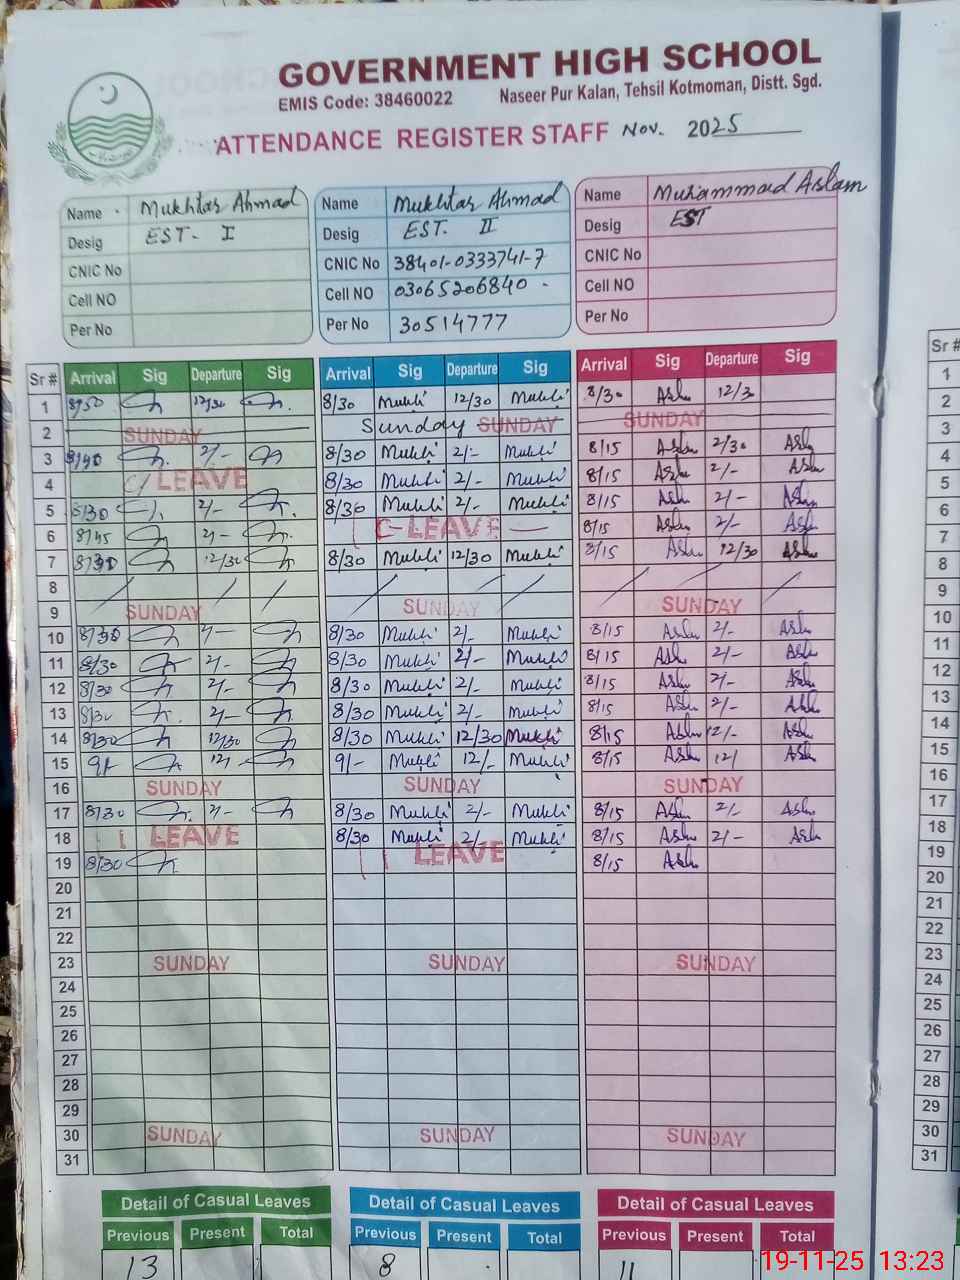 GOVERNMENT HIGH SCHOOL
EMIS Code: 38460022 Naseer Pur Kalan, Tehsil Kotmoman, Distt. Sgd.
ATTENDANCE REGISTER STAFF Nov. 2025
Name Mukhtar Ahmad Name Mukhtar Ahmad Name Muhammad Aslam
Desig EST. I Desig EST. II Desig EST
CNIC No CNIC No 38401-0333741-7 CNIC No
Cell NO Cell NO 03065206840 Cell NO
Per No Per No 30514777 Per No
Sr # Arrival Sig Departure Sig Arrival Sig Departure Sig Arrival Sig Departure Sig Sr #
1 8/50 12/30 8/30 Mukhi 12/30 Mukhi 8/30 Aslm 12/3 1
2 SUNDAY Sunday SUNDAY SUNDAY 2
3 8/40 2/- 8/30 Mukhi 2/- Mukhi 8/15 Aslm 2/30 Aslm 3
4 C/ LEAVE 8/30 Mukhi 2/- Mukhi 8/15 Aslm 2/- Aslm 4
5 8/30 2/- 8/30 Mukhi 2/- Mukhi 8/15 Aslm 2/- Aslm 5
6 8/45 2/- C-LEAVE 8/15 Aslm 2/- Aslm 6
7 8/30 12/30 8/30 Mukhi 12/30 Mukhi 8/15 Aslm 12/30 Aslm 7
8 8
9 SUNDAY SUNDAY SUNDAY 9
10 8/30 2/- 8/30 Mukhi 2/- Mukhi 8/15 Aslm 2/- Aslm 10
11 8/30 2/- 8/30 Mukhi 2/- Mukhi 8/15 Aslm 2/- Aslm 11
12 8/30 2/- 8/30 Mukhi 2/- Mukhi 8/15 Aslm 2/- Aslm 12
13 8/30 2/- 8/30 Mukhi 2/- Mukhi 8/15 Aslm 2/- Aslm 13
14 8/30 12/30 8/30 Mukhi 12/30 Mukhi 8/15 Aslm 12/- Aslm 14
15 9/- 12/- 9/- Mukhi 12/- Mukhi 8/15 Aslm 12/ Aslm 15
16 SUNDAY SUNDAY SUNDAY 16
17 8/30 2/- 8/30 Mukhi 2/- Mukhi 8/15 Aslm 2/- Aslm 17
18 LEAVE 8/30 Mukhi 2/- Mukhi 8/15 Aslm 2/- Aslm 18
19 8/30 LEAVE 8/15 Aslm 19
20 20
21 21
22 22
23 SUNDAY SUNDAY SUNDAY 23
24 24
25 25
26 26
27 27
28 28
29 29
30 SUNDAY SUNDAY SUNDAY 30
31 31
Detail of Casual Leaves Detail of Casual Leaves Detail of Casual Leaves
Previous Present Total Previous Present Total Previous Present Total
13 8 11
19-11-25 13:23